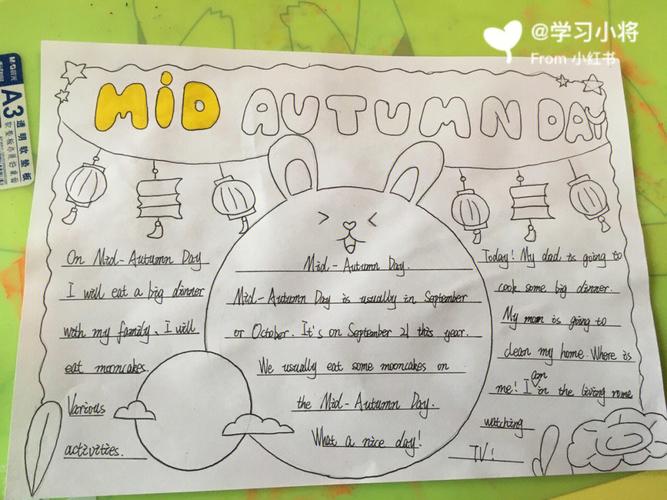 @学习小将
From 小红书
M&G晨光
A3
透明软垫板
MiD AUTUMN DAY
On Mid-Autumn Day
I will eat a big dinner
with my family. I will
eat mooncakes.
Various
activities.
Mid-Autumn Day.
Mid-Autumn Day is usually in September
or October. It's on September 21 this year.
We usually eat some mooncakes on
the Mid-Autumn Day.
What a nice day!
Today! My dad is going to
cook some big dinner.
My mum is going to
clean my home. Where is
me! I am in the living rome
watching
TV!